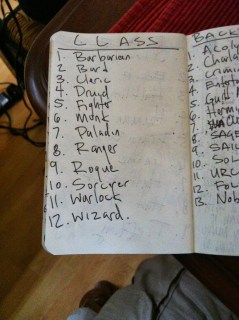 CLASS
1. Barbarian
2 Bard
3. Cleric
4. Druyd
5. Fighter
6. Monk
7. Paladin
8. Ranger
9. Rogue
10. Sorcerer
11. Warlock
12. Wizard.
BACK
1. Acoly
2. Charla
3. Crimin
4. Entert
5. Guil
6. Herm
7.
8. SAGE
9. SAIL
10. Sol
11. URC
12. Fol
13. Nob